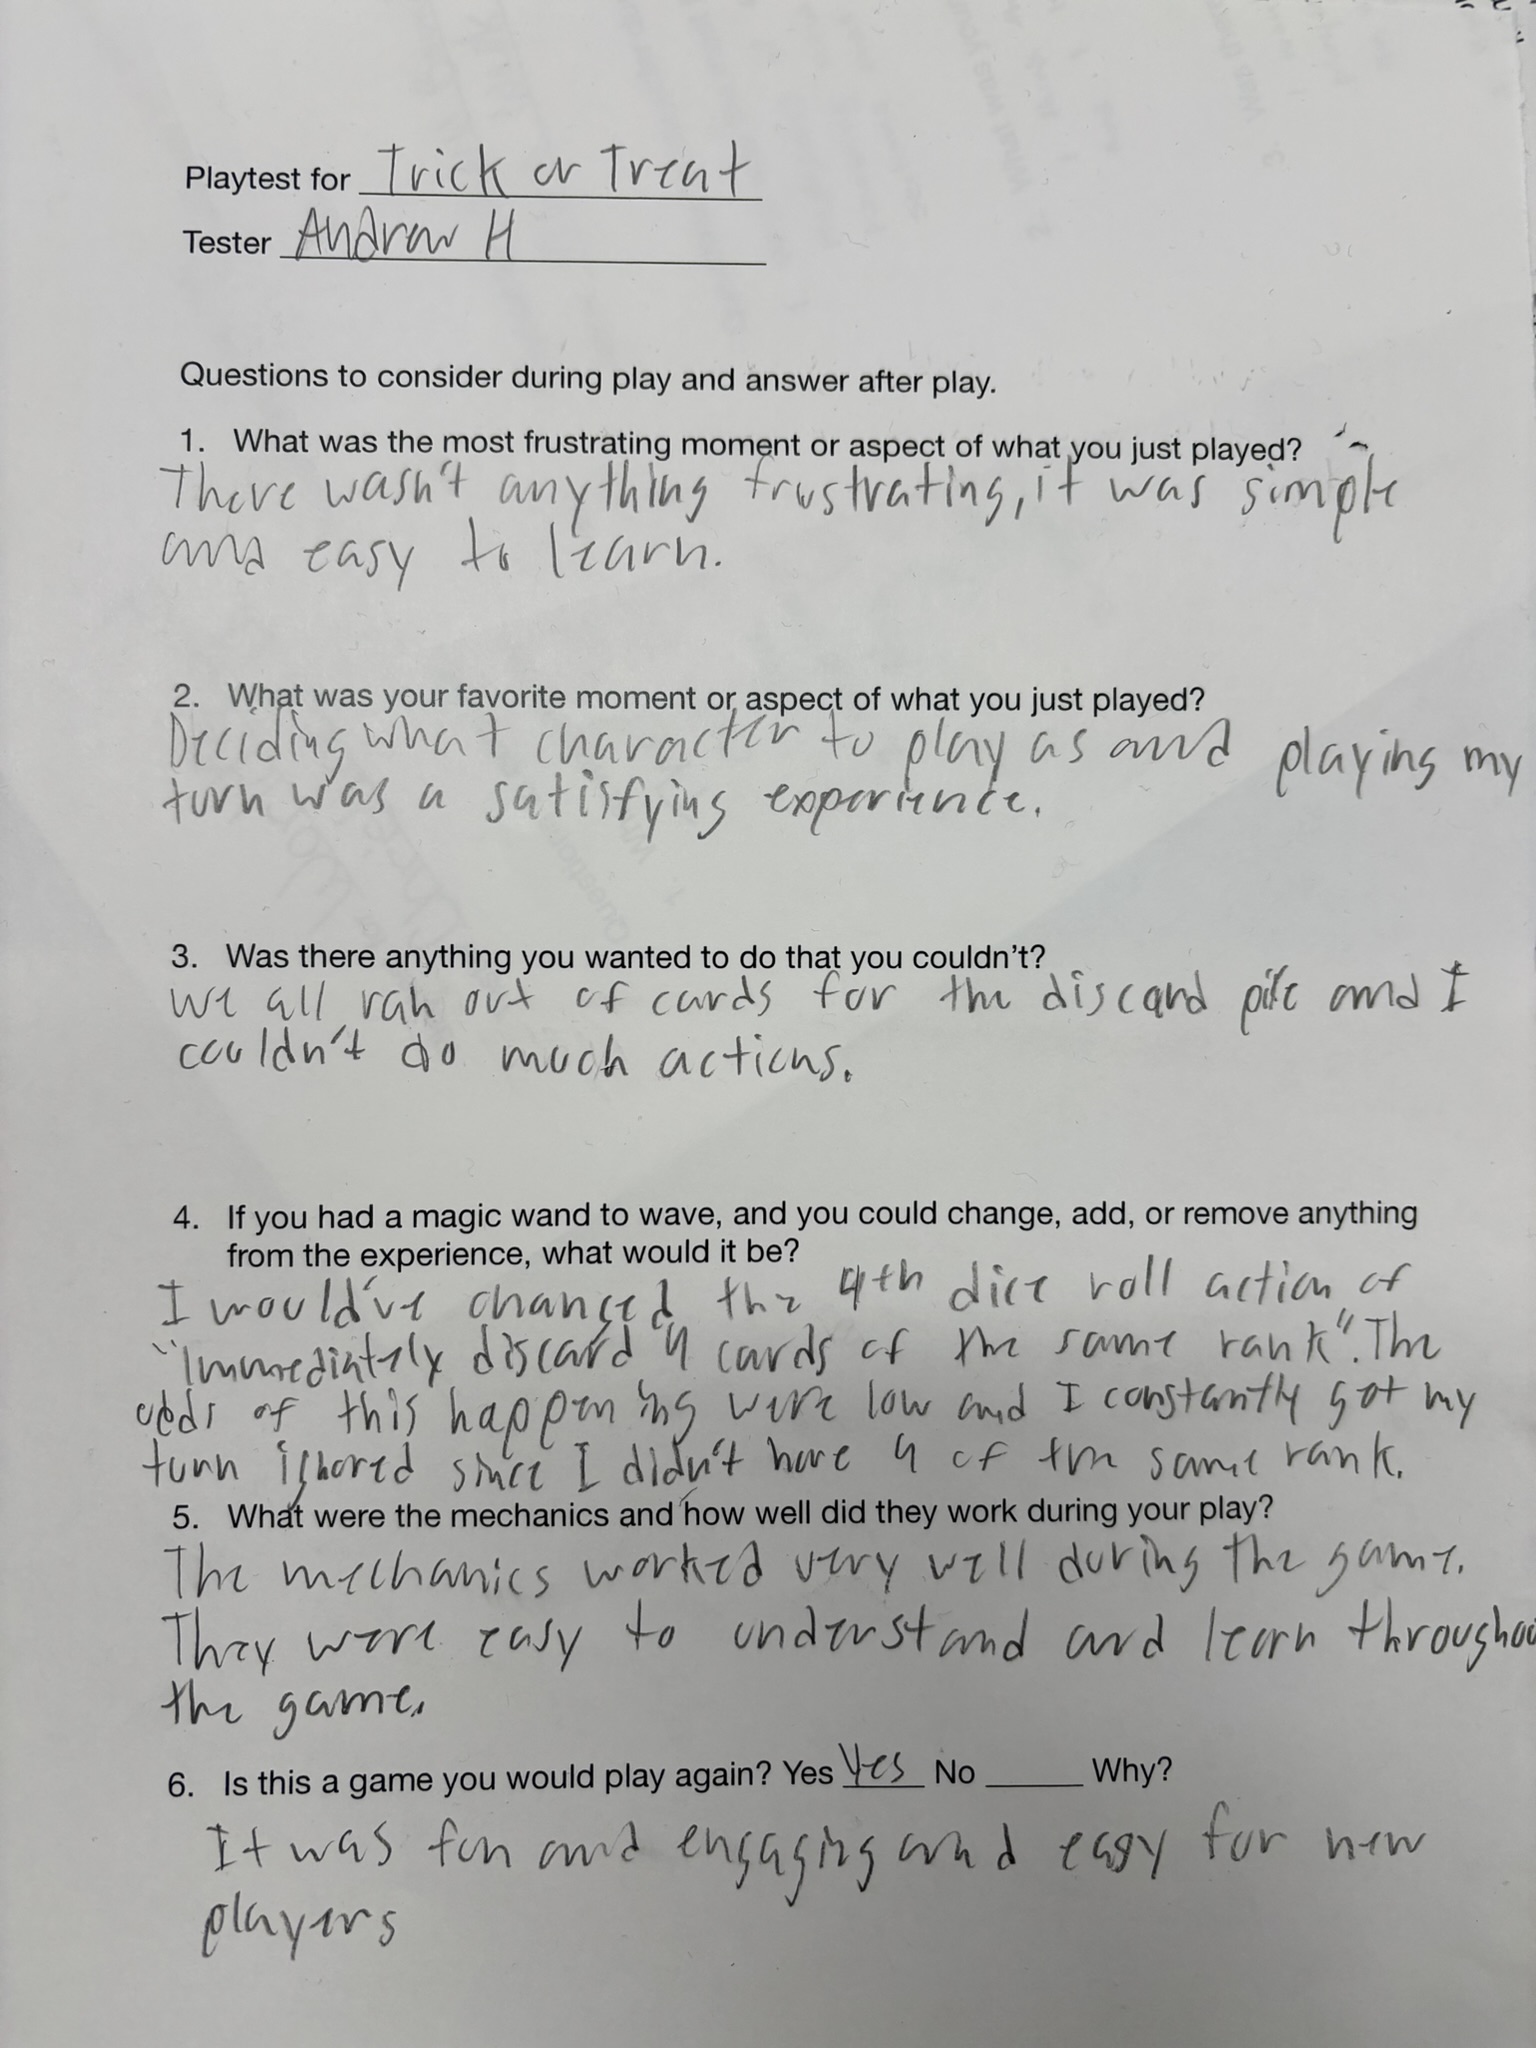 Playtest for Trick or Treat
Tester Andrew H
Questions to consider during play and answer after play.
1. What was the most frustrating moment or aspect of what you just played?
There wasn't anything frustrating, it was simple
and easy to learn.
2. What was your favorite moment or aspect of what you just played?
Deciding what character to play as and playing my
turn was a satisfying experience.
3. Was there anything you wanted to do that you couldn't?
We all ran out of cards for the discard pile and I
couldn't do much actions.
4. If you had a magic wand to wave, and you could change, add, or remove anything
from the experience, what would it be?
I would've changed the 4th dice roll action of
"Immediately discard 4 cards of the same rank". The
odds of this happening were low and I constantly got my
turn ignored since I didn't have 4 of the same rank.
5. What were the mechanics and how well did they work during your play?
The mechanics worked very well during the game.
They were easy to understand and learn throughou
the game.
6. Is this a game you would play again? Yes Yes No ____ Why?
It was fun and engaging and easy for new
players